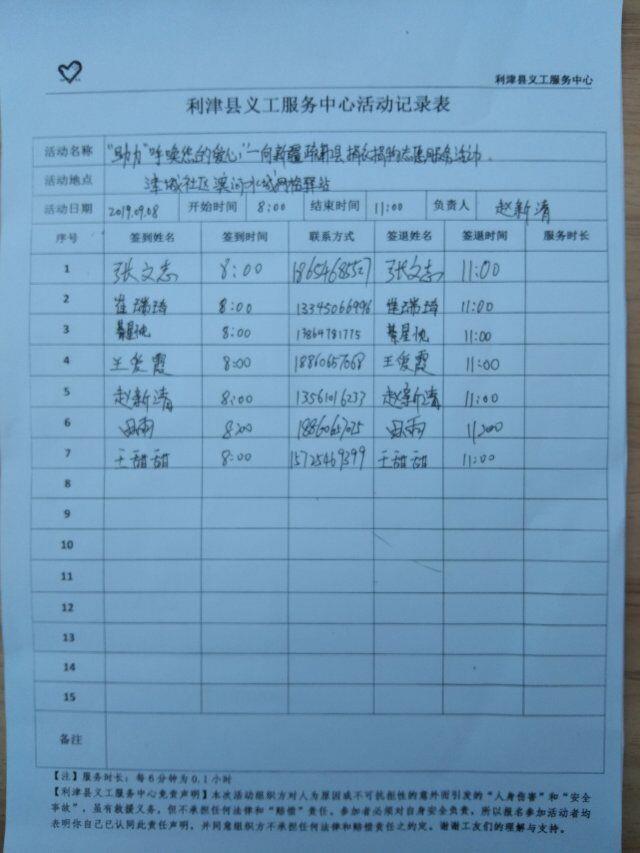 利津县义工服务中心
利津县义工服务中心活动记录表
活动名称 "助力"呼唤您的爱心"—向新疆疏勒县捐衣捐物志愿服务活动.
活动地点 津城社区滨河水城网格驿站
活动日期 2019.09.08 开始时间 8:00 结束时间 11:00 负责人 赵新清
序号 签到姓名 签到时间 联系方式 签退姓名 签退时间 服务时长
1 张文志 8:00 18654685527 张文志 11:00
2 崔瑞琦 8:00 13345066996 崔瑞琦 11:00
3 綦星悦 8:00 13864781775 綦星悦 11:00
4 王爱霞 8:00 18860657068 王爱霞 11:00
5 赵新清 8:00 13561016237 赵新清 11:00
6 8:00 11:00
7 王甜甜 8:00 15725469399 王甜甜 11:00
8
9
10
11
12
13
14
15
备注
【注】服务时长：每6分钟为0.1小时
【利津县义工服务中心免责声明】本次活动组织方对人为原因或不可抗拒性的意外而引发的"人身伤害"和"安全
事故"，虽有救援义务，但不承担任何法律和"赔偿"责任。参加者必须对自身安全负责，所以报名参加活动者均
表明你自己已认同此责任声明，并同意组织方不承担任何法律和赔偿责任之约定。谢谢工友们的理解与支持。